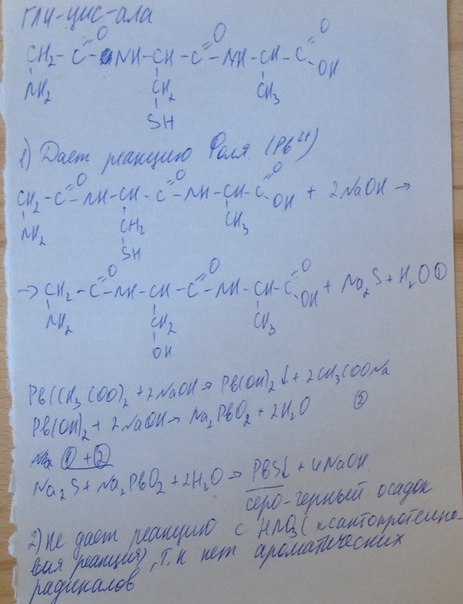 гли-цис-ала
CH₂ - C(=O) - NH - CH - C(=O) - NH - CH - C(=O)OH
NH₂ CH₂ CH₃
SH
1) Дает реакцию Фоля (Pb²⁺)
CH₂ - C(=O) - NH - CH - C(=O) - NH - CH - C(=O)OH + 2NaOH →
NH₂ CH₂ CH₃
SH
→ CH₂ - C(=O) - NH - CH - C(=O) - NH - CH - C(=O)OH + Na₂S + H₂O ①
NH₂ CH₂ CH₃
OH
Pb(CH₃COO)₂ + 2NaOH → Pb(OH)₂↓ + 2CH₃COONa
Pb(OH)₂ + 2NaOH → Na₂PbO₂ + 2H₂O ②
① + ②
Na₂S + Na₂PbO₂ + 2H₂O → PbS↓ + 4NaOH
серо-черный осадок
2) не дает реакцию с HNO₃ (ксантопротеино-
вая реакция), т.к нет ароматических
радикалов